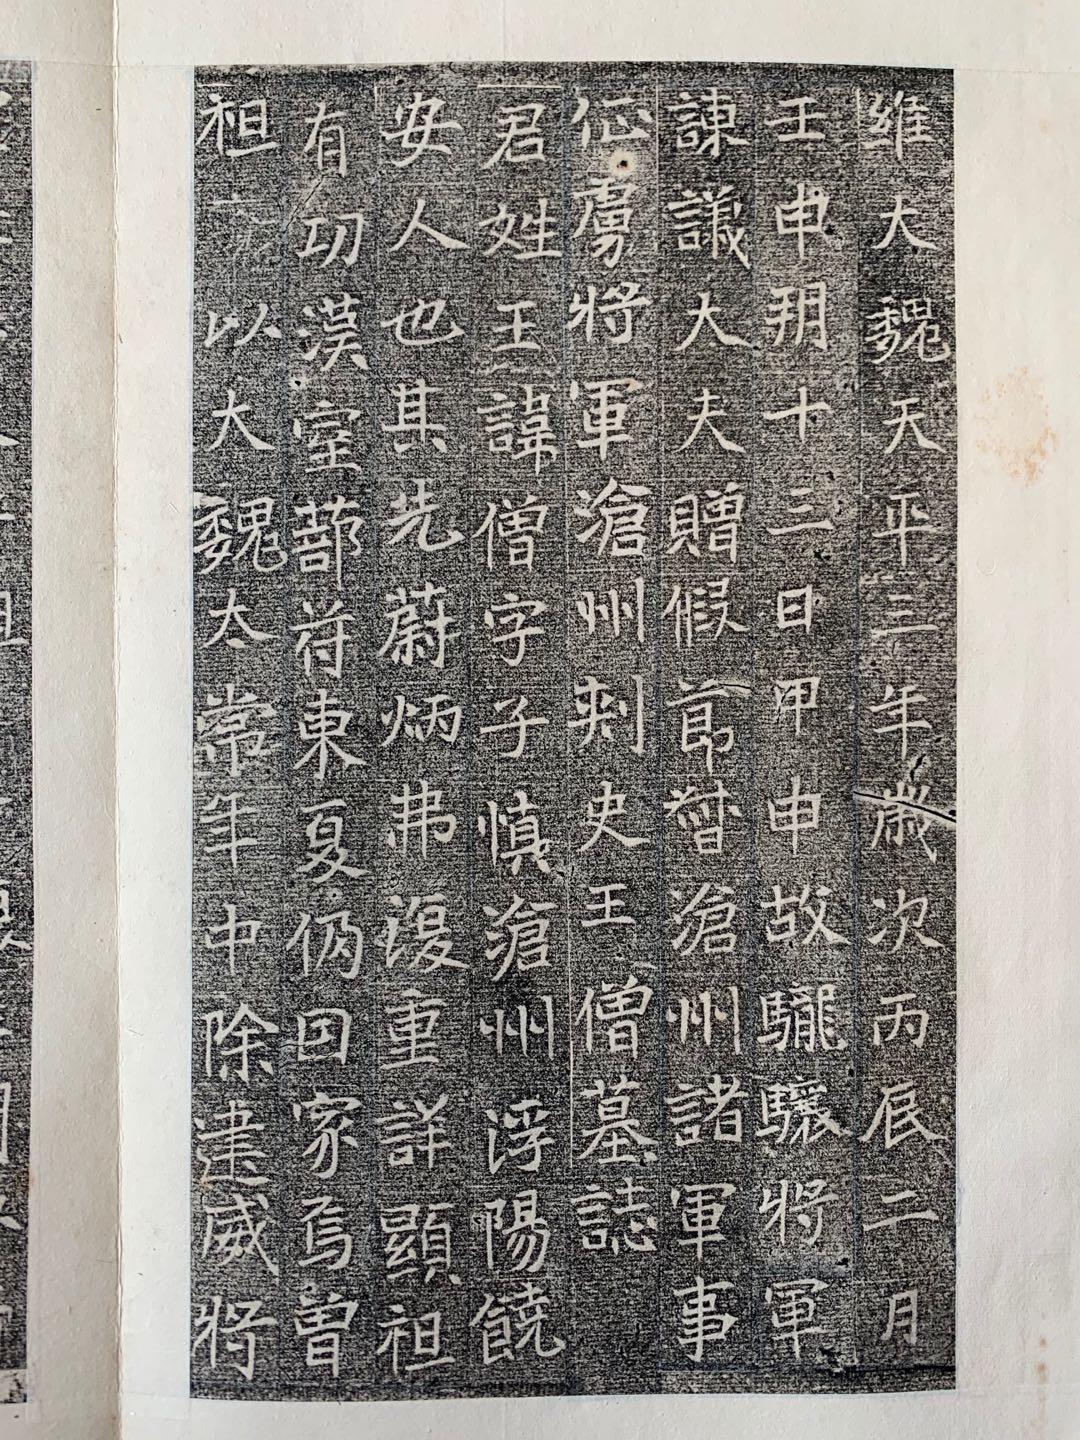 維大魏天平三年歲次丙辰二月
壬申朔十三日甲申故驪驤將軍
諫議大夫贈假莭督滄州諸軍事
征虜將軍滄州刾史王僧墓誌
君姓王諱僧字子慎滄州浮陽饒
安人也其先蔚炳弗復重詳顯祖
有功漢室莭苻東夏仍因家焉曾
祖以大魏太常年中除建威將